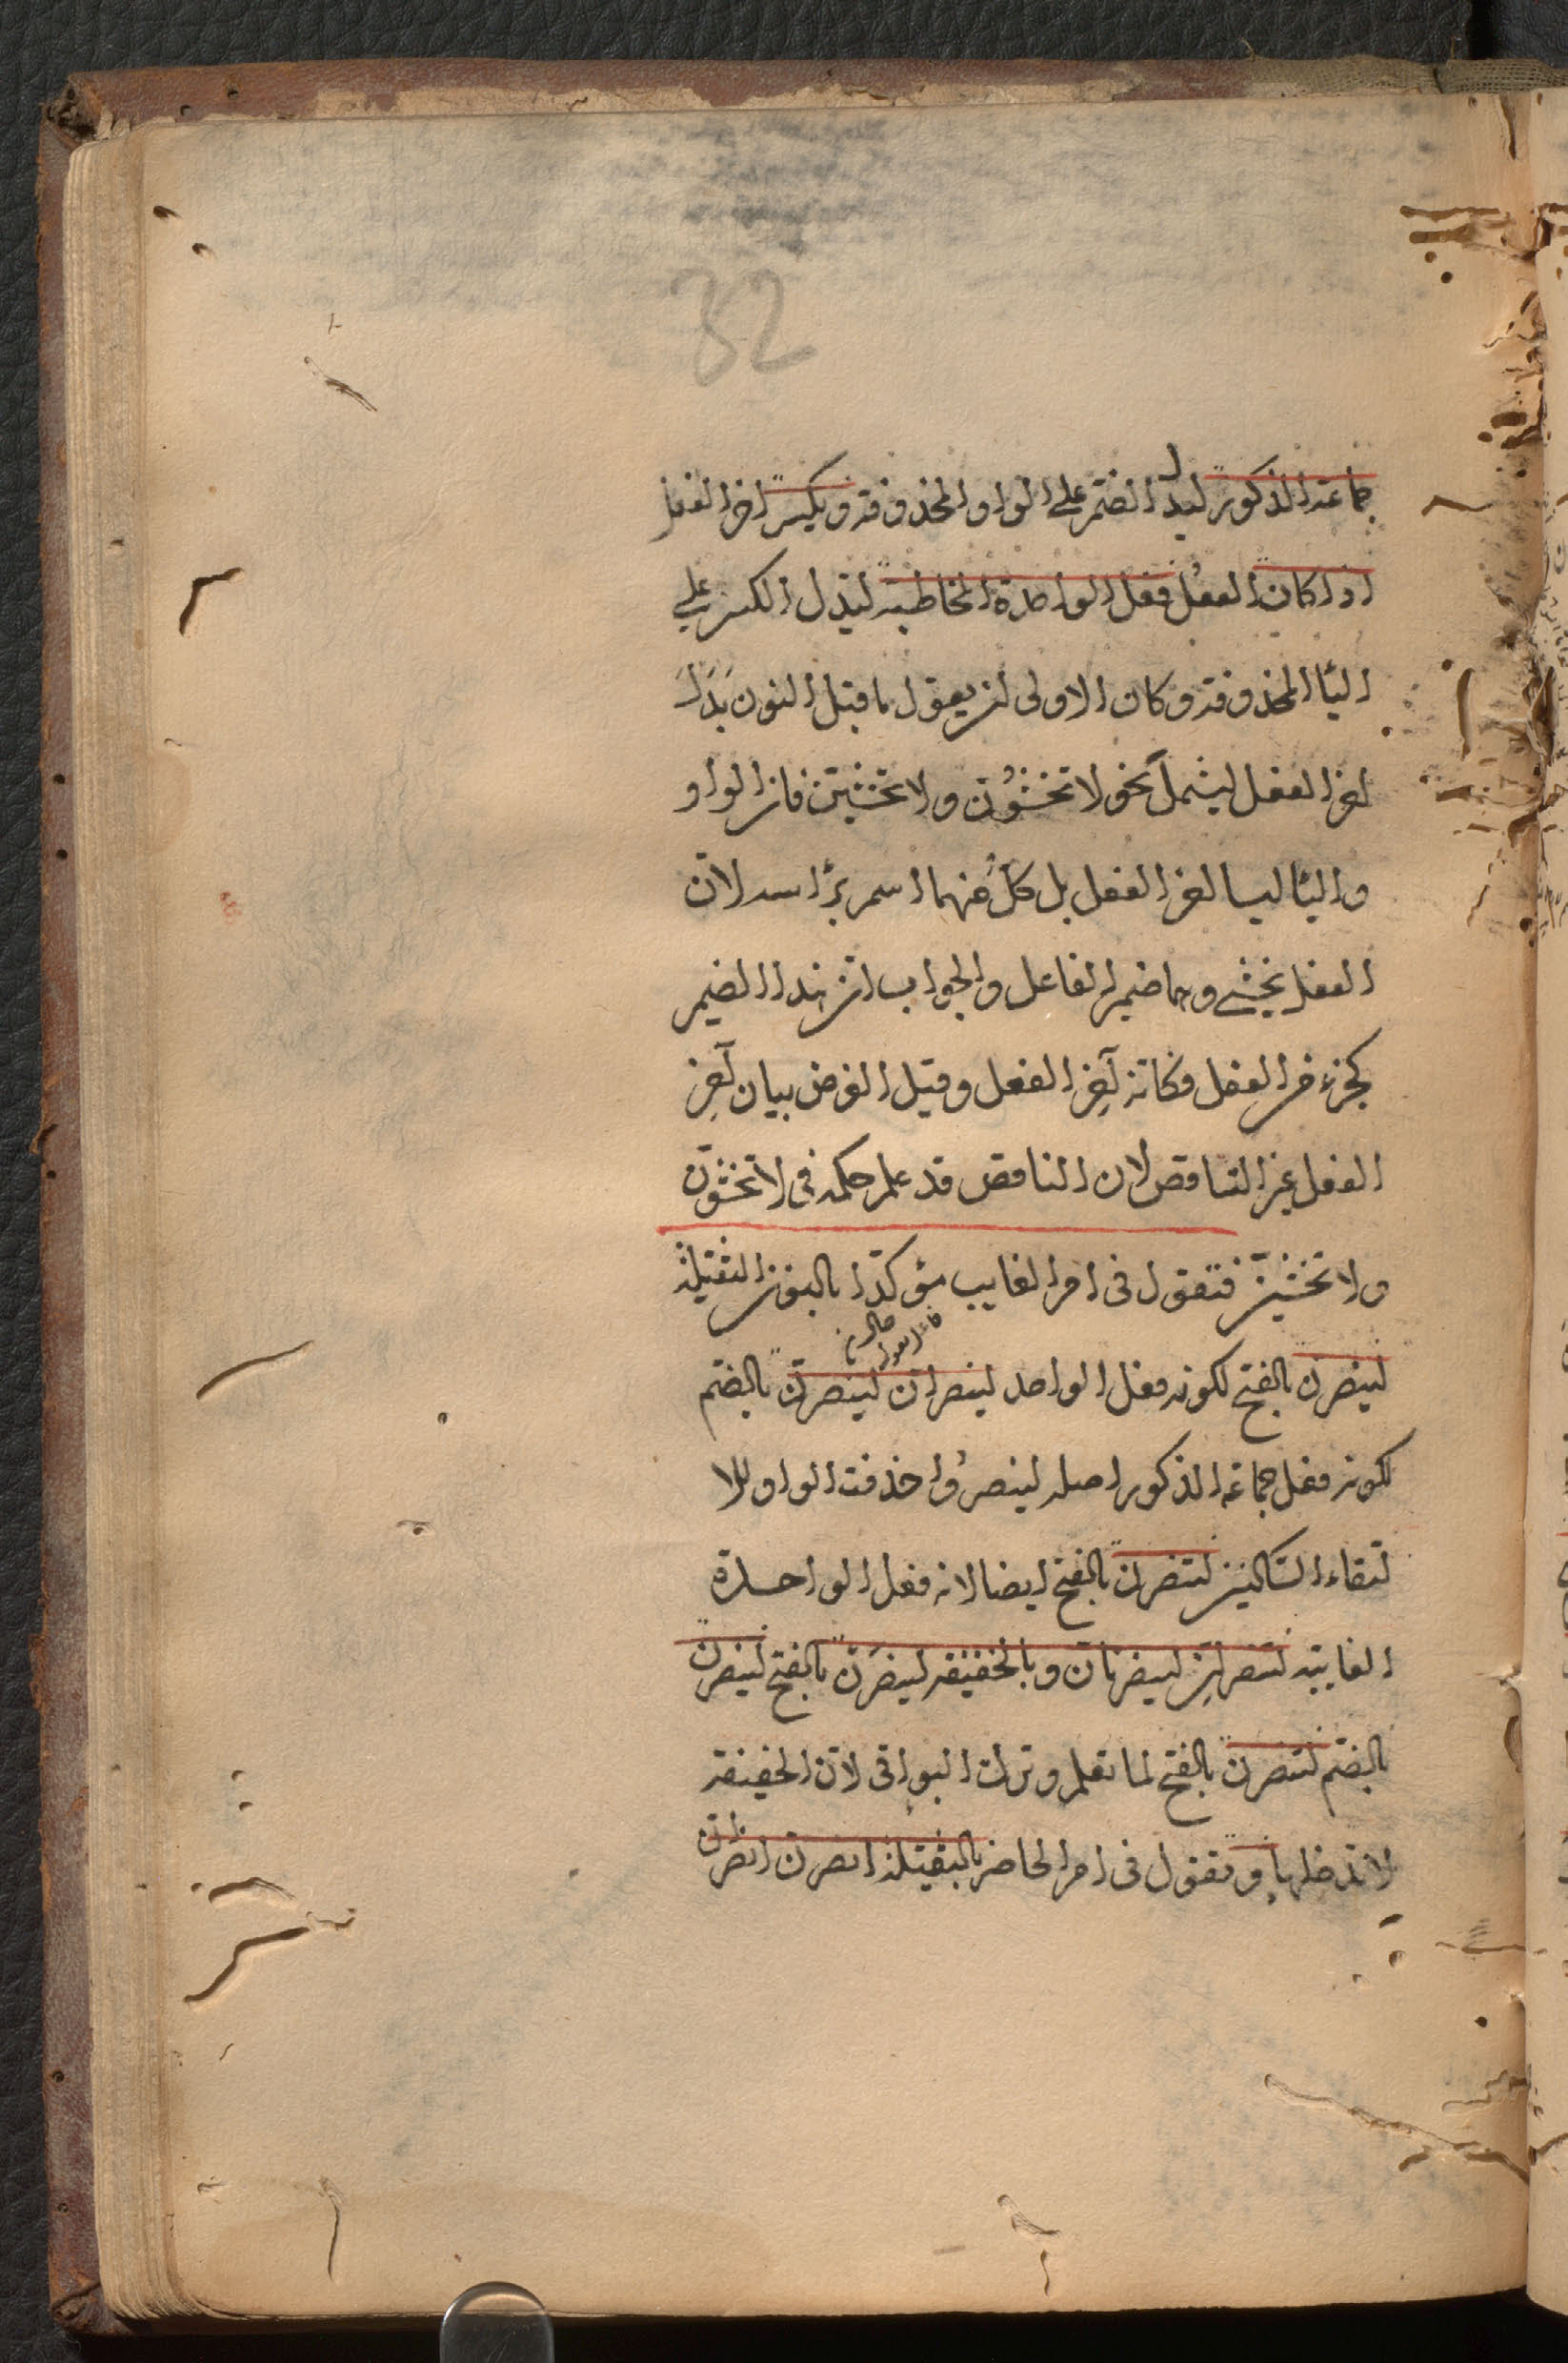 32
جماعة الذكور ليدل الضم على الواو المحذوفة ويكسر اخر الفعل
اذا كان الفعل فعل الواحدة المخاطبة ليدل الكسر على
اليا المحذوفة وكان الاولى ان يقول ما قبل النون بَدَلَ
اخر الفعل ليشمل نحو لا تخشوُن ولا تخشين فان الواو
واليا ليسا اخر الفعل بل كلٌ منهما اسم براسه لان
الفعل يخشى وهما ضمير الفاعل والجواب ان هذا الضمير
كجزء من الفعل فكانه آخِر الفعل وقيل الغرض بيان آخِر
الفعل غير الناقص لان الناقص قد علم حكمه فى لا تخشون
ولا تخشين فتقول فى امر الغايب مؤكدا بالنون الثقيلة
لينصرن بالفتح لكونه فعل الواحد لينصران لينصرن بالضم
لكونه فعل جماعة الذكور اصله لينصرُوا حذفت الواو لالا
لتقاء الساكنين لتنصرن بالفتح ايضا لانه فعل الواحدة
الغايبة لتنصران لينصرنان وبالخفيفة لينصرَن بالفتح لينصرن
بالضم لتنصرن بالفتح لما تعلم وترك البواقى لان الخفيفة
لا تدخلها وتقول فى امر الحاضر بالثقيلة انصرن انصران